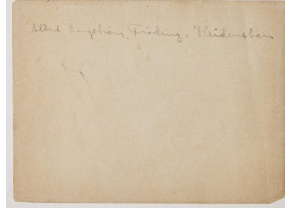 Albert Engström, Fröding, Heidenstam